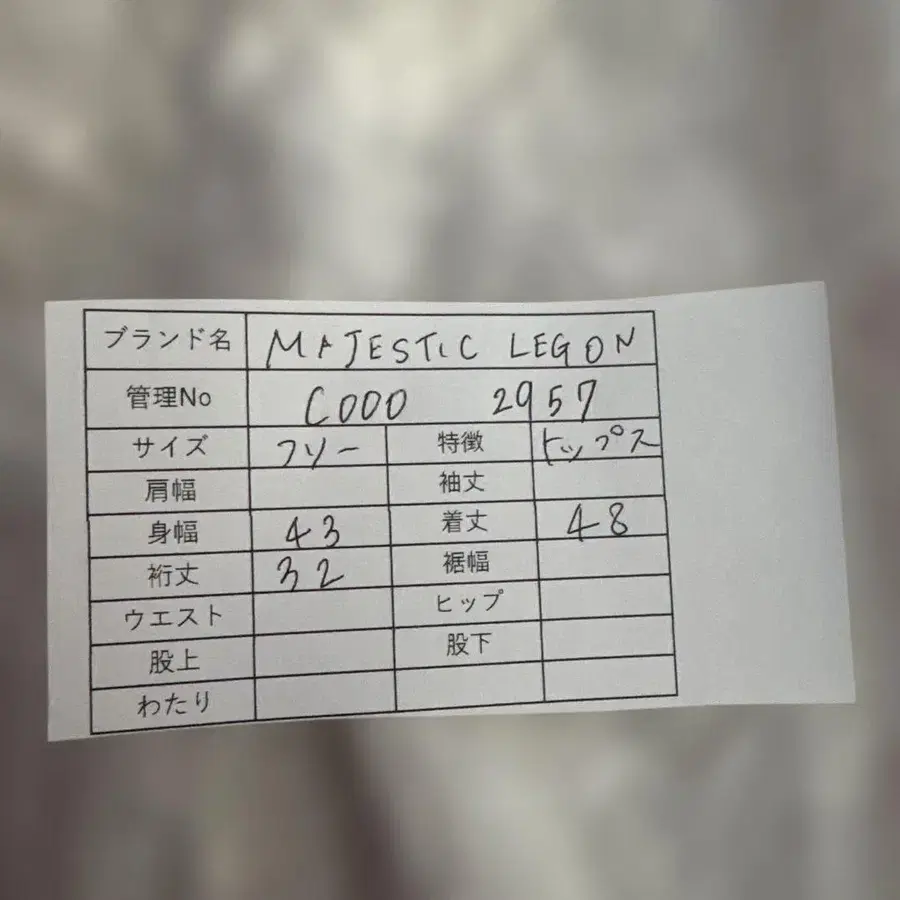 ブランド名 MAJESTIC LEGON
管理No C000 2957
サイズ フリー 特徴 トップス
肩幅 袖丈
身幅 43 着丈 48
裄丈 32 裾幅
ウエスト ヒップ
股上 股下
わたり